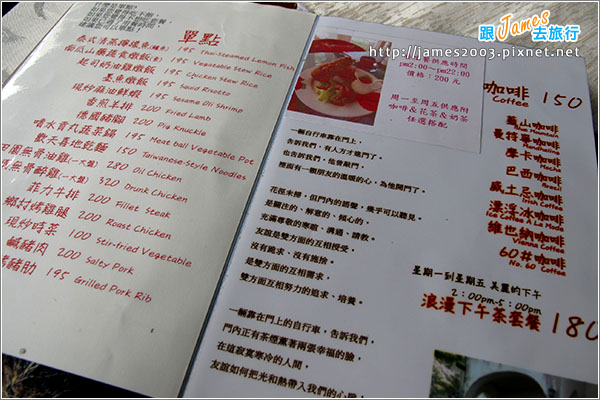 跟James去旅行
http://james2003.pixnet.net/
單點
195 Thai-Steamed Lemon Fish
195 Vegetable Stew Rice
起司奶油雞燉飯 195 Chicken Stew Rice
墨魚燉飯 195 Squid Risotto
現炒麻油鮮蝦 195 Sesame Oil Shrimp
香煎羊排 200 Fried Lamb
德國豬腳 200 Pig Knuckle
噴水貢丸蔬菜鍋 195 Meat ball Vegetable Pot
歡天喜地乾麵 150 Taiwanese-Style Noodles
田園無骨油雞(一大盤) 280 Oil Chicken
無骨醉雞(一大盤) 320 Drunk Chicken
菲力牛排 200 Fillet Steak
鄉村烤雞腿 200 Roast Chicken
現炒時菜 100 Stir-fried Vegetable
鹹豬肉 200 Salty Pork
烤豬肋 195 Grilled Pork Rib
餐供應時間
pm2:00~pm22:00
價格:200元
周一至周五供應附
咖啡&花茶&奶茶
任選搭配
一輛自行車靠在門上,
告訴我們,有人方才進門了。
也告訴我們,他會敲門,
裡面有朋友的溫暖的心,為他開門了。
花徑未掃,但門內的語聲,幾乎可以聽見。
是關注的、解意的、傾心的,
充滿尊敬的寒暄、溝通、請教。
友誼是雙方面的互相授受,
沒有跪求、沒有施捨,
是雙方面的互相需求,
雙方面互相努力的追求、培養。
一輛靠在門上的自行車,告訴我們,
門內正有茶煙薰著兩張幸福的臉,
在這寂寞寒冷的人間,
友誼如何把光和熱帶入我們的心
咖啡 150
Coffee
藍山咖啡
曼特寧咖啡
摩卡咖啡
Mocha
巴西咖啡
Brazil
威士忌咖啡
漂浮冰咖啡
Ice Coffee A La Mode
維也納咖啡
Vienna Coffee
60#咖啡
No. 60 Coffee
星期一到星期五 美麗的下午
2:00pm-5:00pm
浪漫下午茶套餐 180